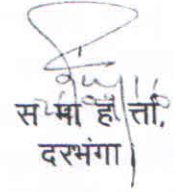 समाहर्त्ता,
दरभंगा।